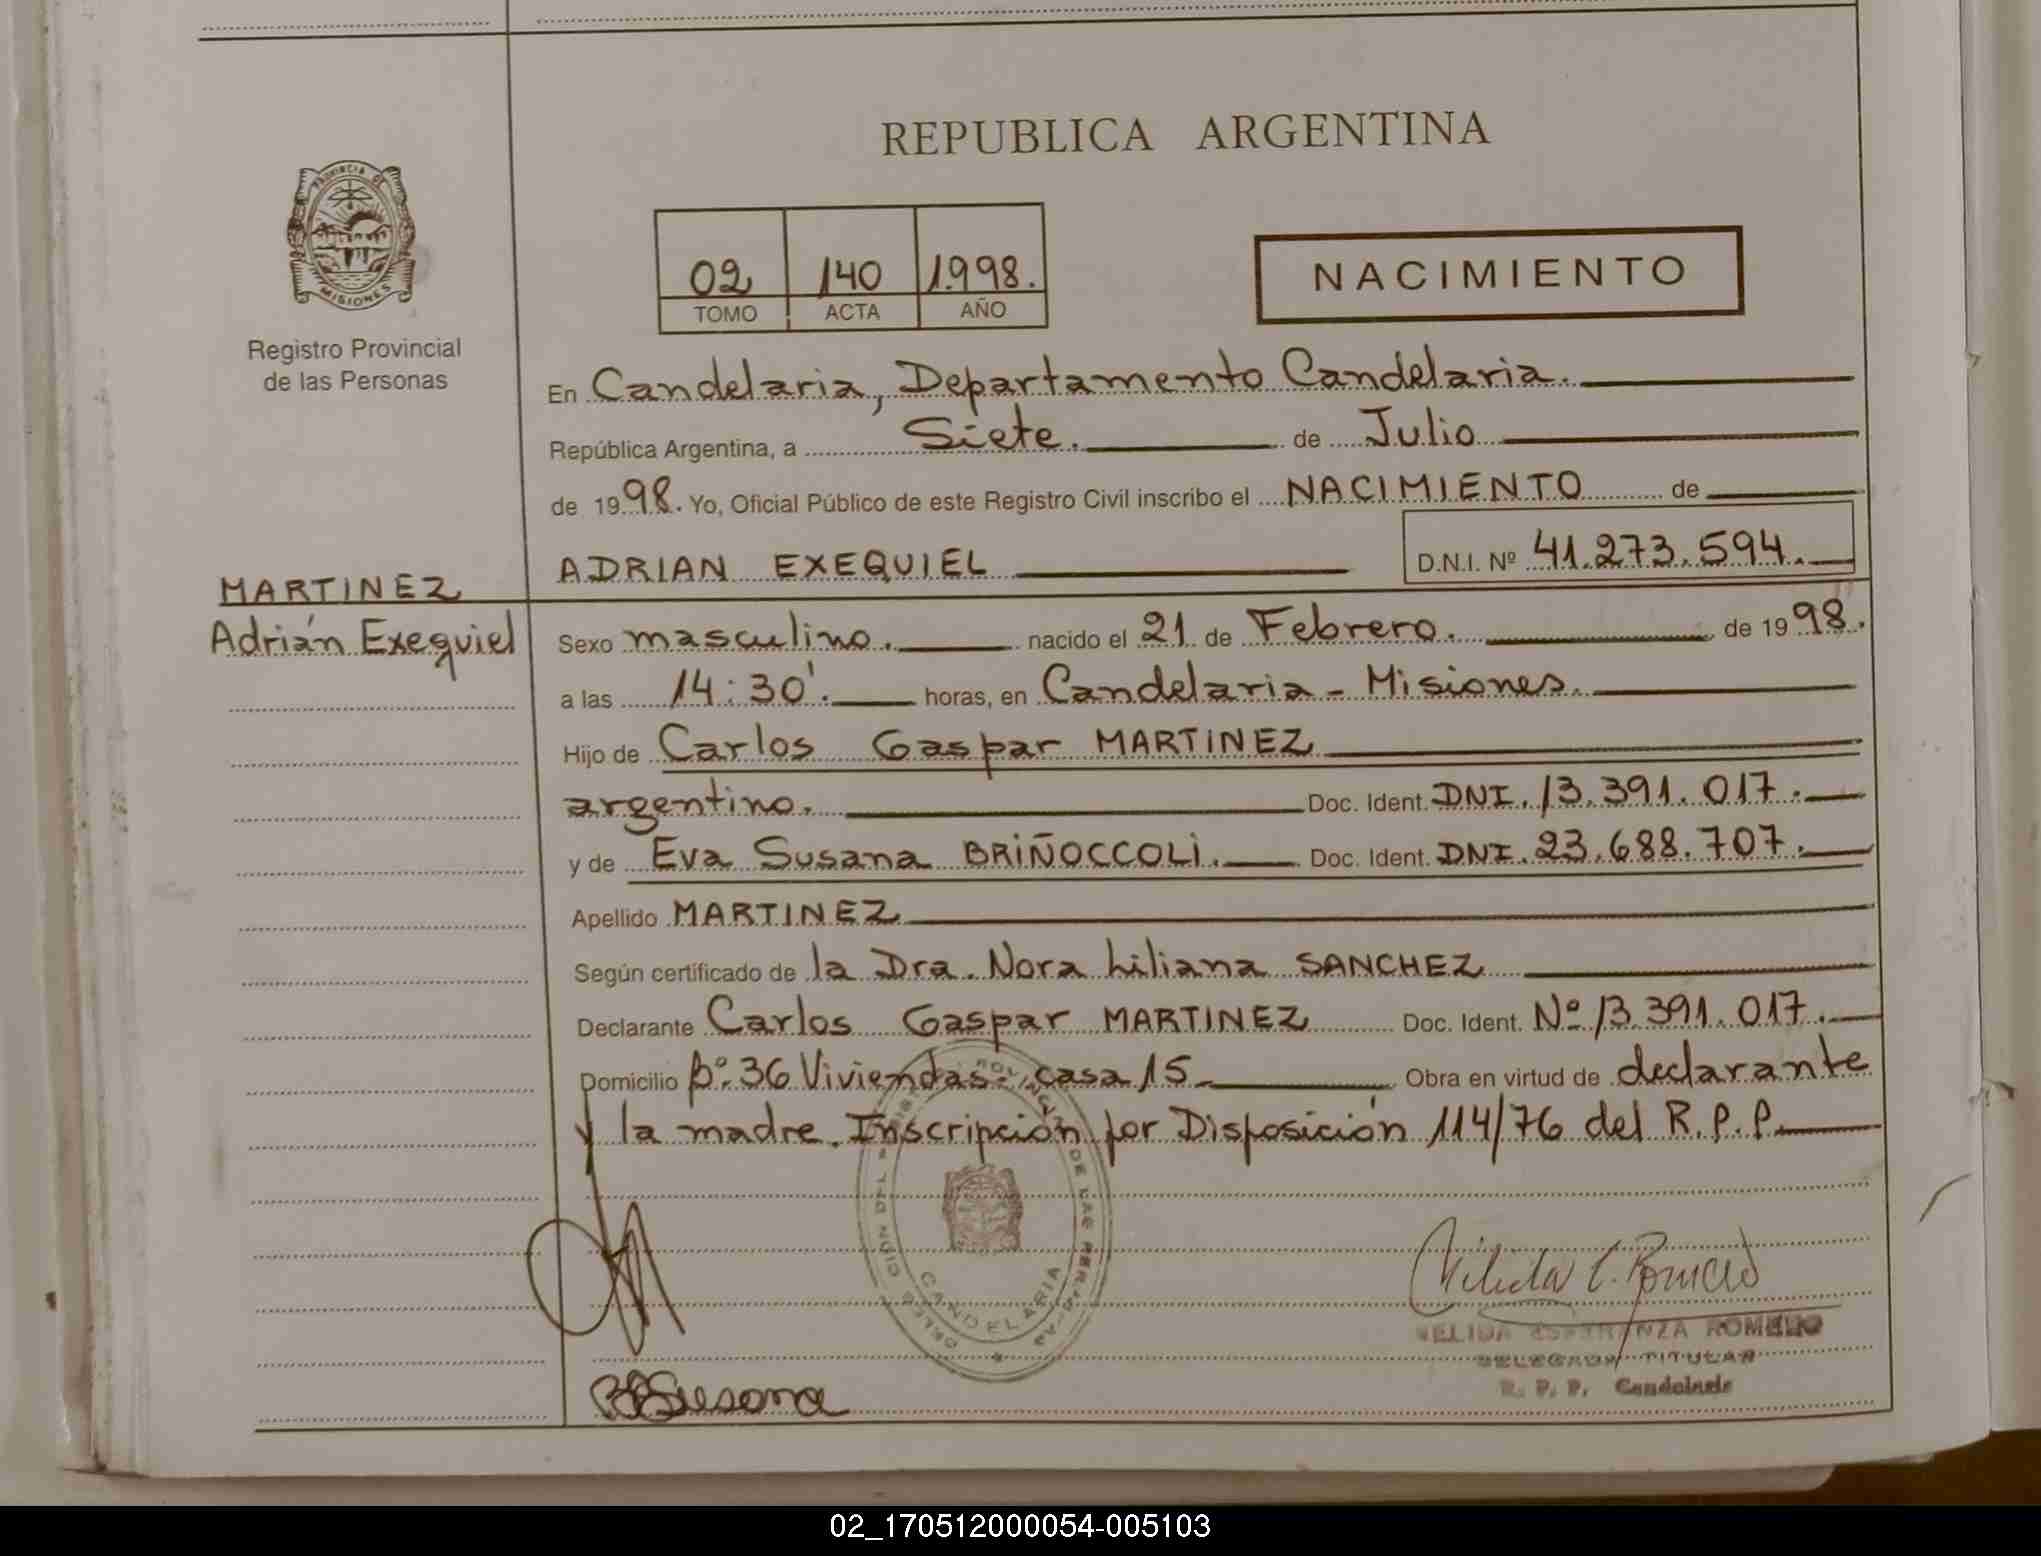 REPUBLICA ARGENTINA
PROVINCIA DE
MISIONES
Registro Provincial
de las Personas
02 140 1.998.
TOMO ACTA AÑO
NACIMIENTO
En Candelaria, Departamento Candelaria.
República Argentina, a Siete. de Julio
de 1998. Yo, Oficial Público de este Registro Civil inscribo el NACIMIENTO de
ADRIAN EXEQUIEL D.N.I. Nº 41.273.594.
MARTINEZ
Adrián Exequiel
Sexo masculino. nacido el 21 de Febrero. de 1998.
a las 14:30'. horas, en Candelaria - Misiones.
Hijo de Carlos Gaspar MARTINEZ
argentino. Doc. Ident. DNI. 13.391.017.
y de Eva Susana BRIÑOCCOLI. Doc. Ident. DNI. 23.688.707.
Apellido MARTINEZ
Según certificado de la Dra. Nora Liliana SANCHEZ
Declarante Carlos Gaspar MARTINEZ Doc. Ident. Nº 13.391.017.
Domicilio Bº. 36 Viviendas. casa 15 Obra en virtud de declarante
y la madre. Inscripción por Disposición 114/76 del R.P.P.
CANDELARIA
NELIDA ESPERANZA ROMERO
DELEGADA TITULAR
R. P. P. Candelaria
Susana
02_170512000054-005103